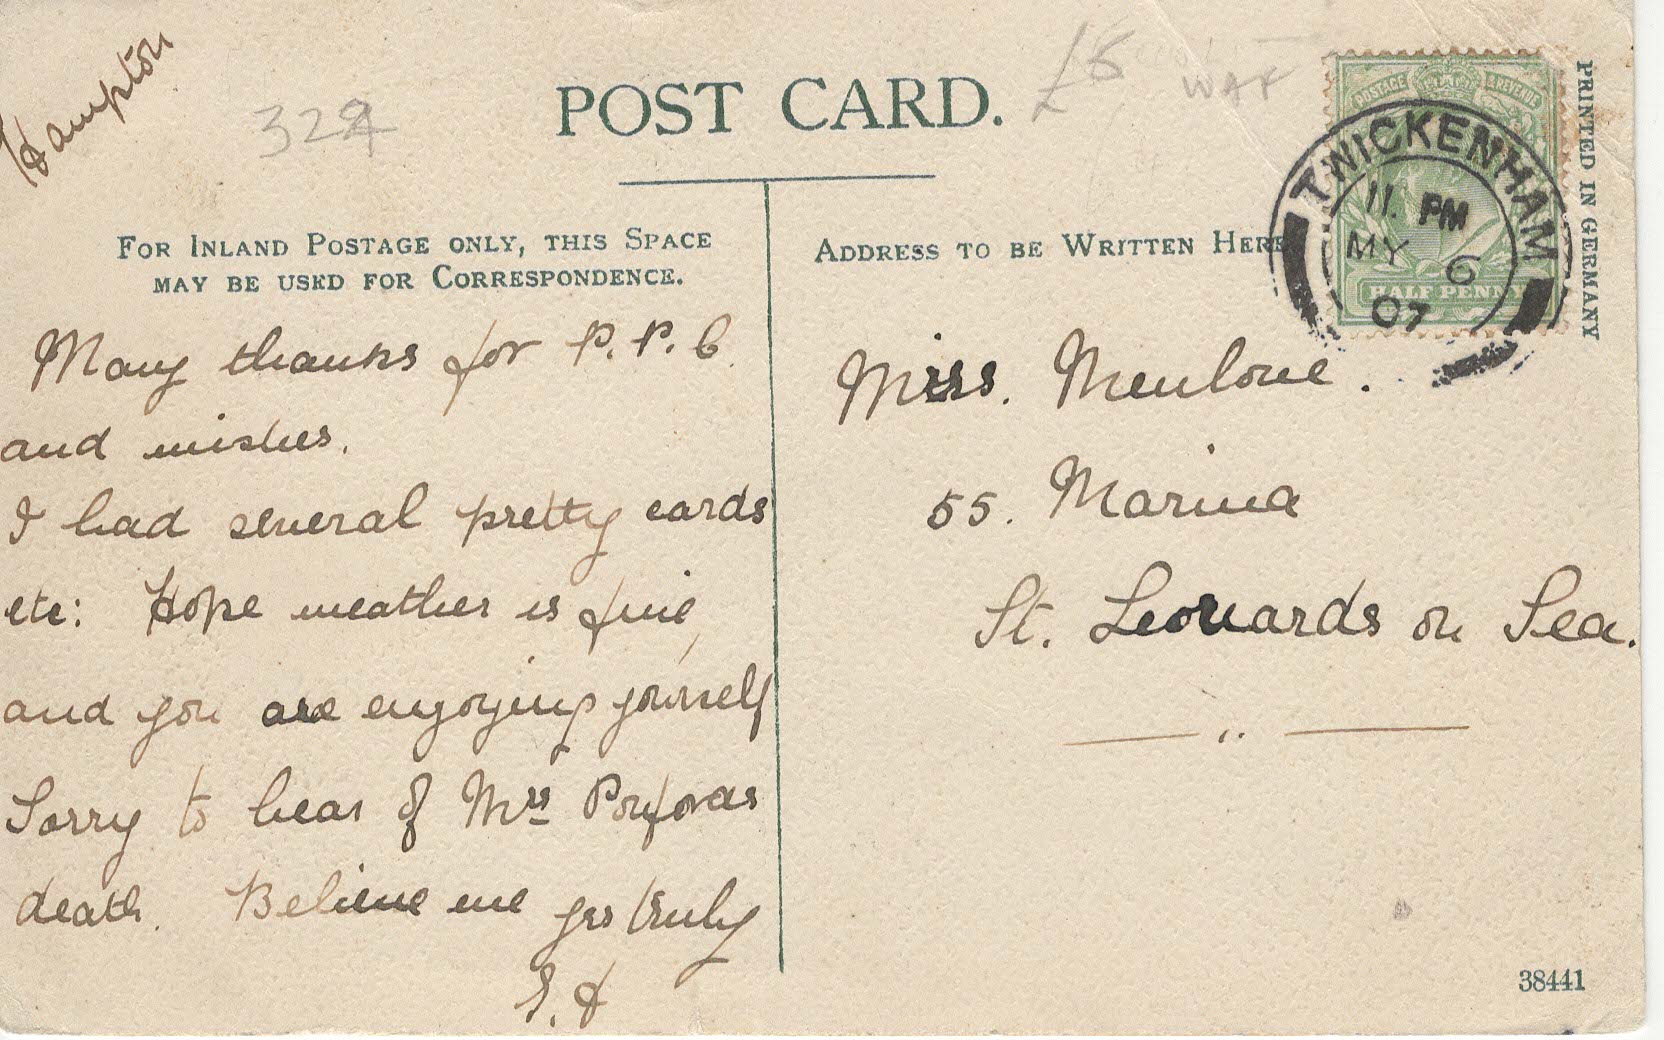 Hampton
POST CARD.
£5
WAX
FOR INLAND POSTAGE ONLY, THIS SPACE
MAY BE USED FOR CORRESPONDENCE.
ADDRESS TO BE WRITTEN HERE
POSTAGE REVENUE
HALF PENNY
TWICKENHAM
11. PM
MY 6
07
PRINTED IN GERMANY
Many thanks for P. P. C
and wishes.
I had several pretty cards
etc: Hope weather is fine,
and you are enjoying yourself
Sorry to hear of Mrs
death. Believe me yrs truly
Miss.
55. Marina
St. Leonards on Sea.
38441